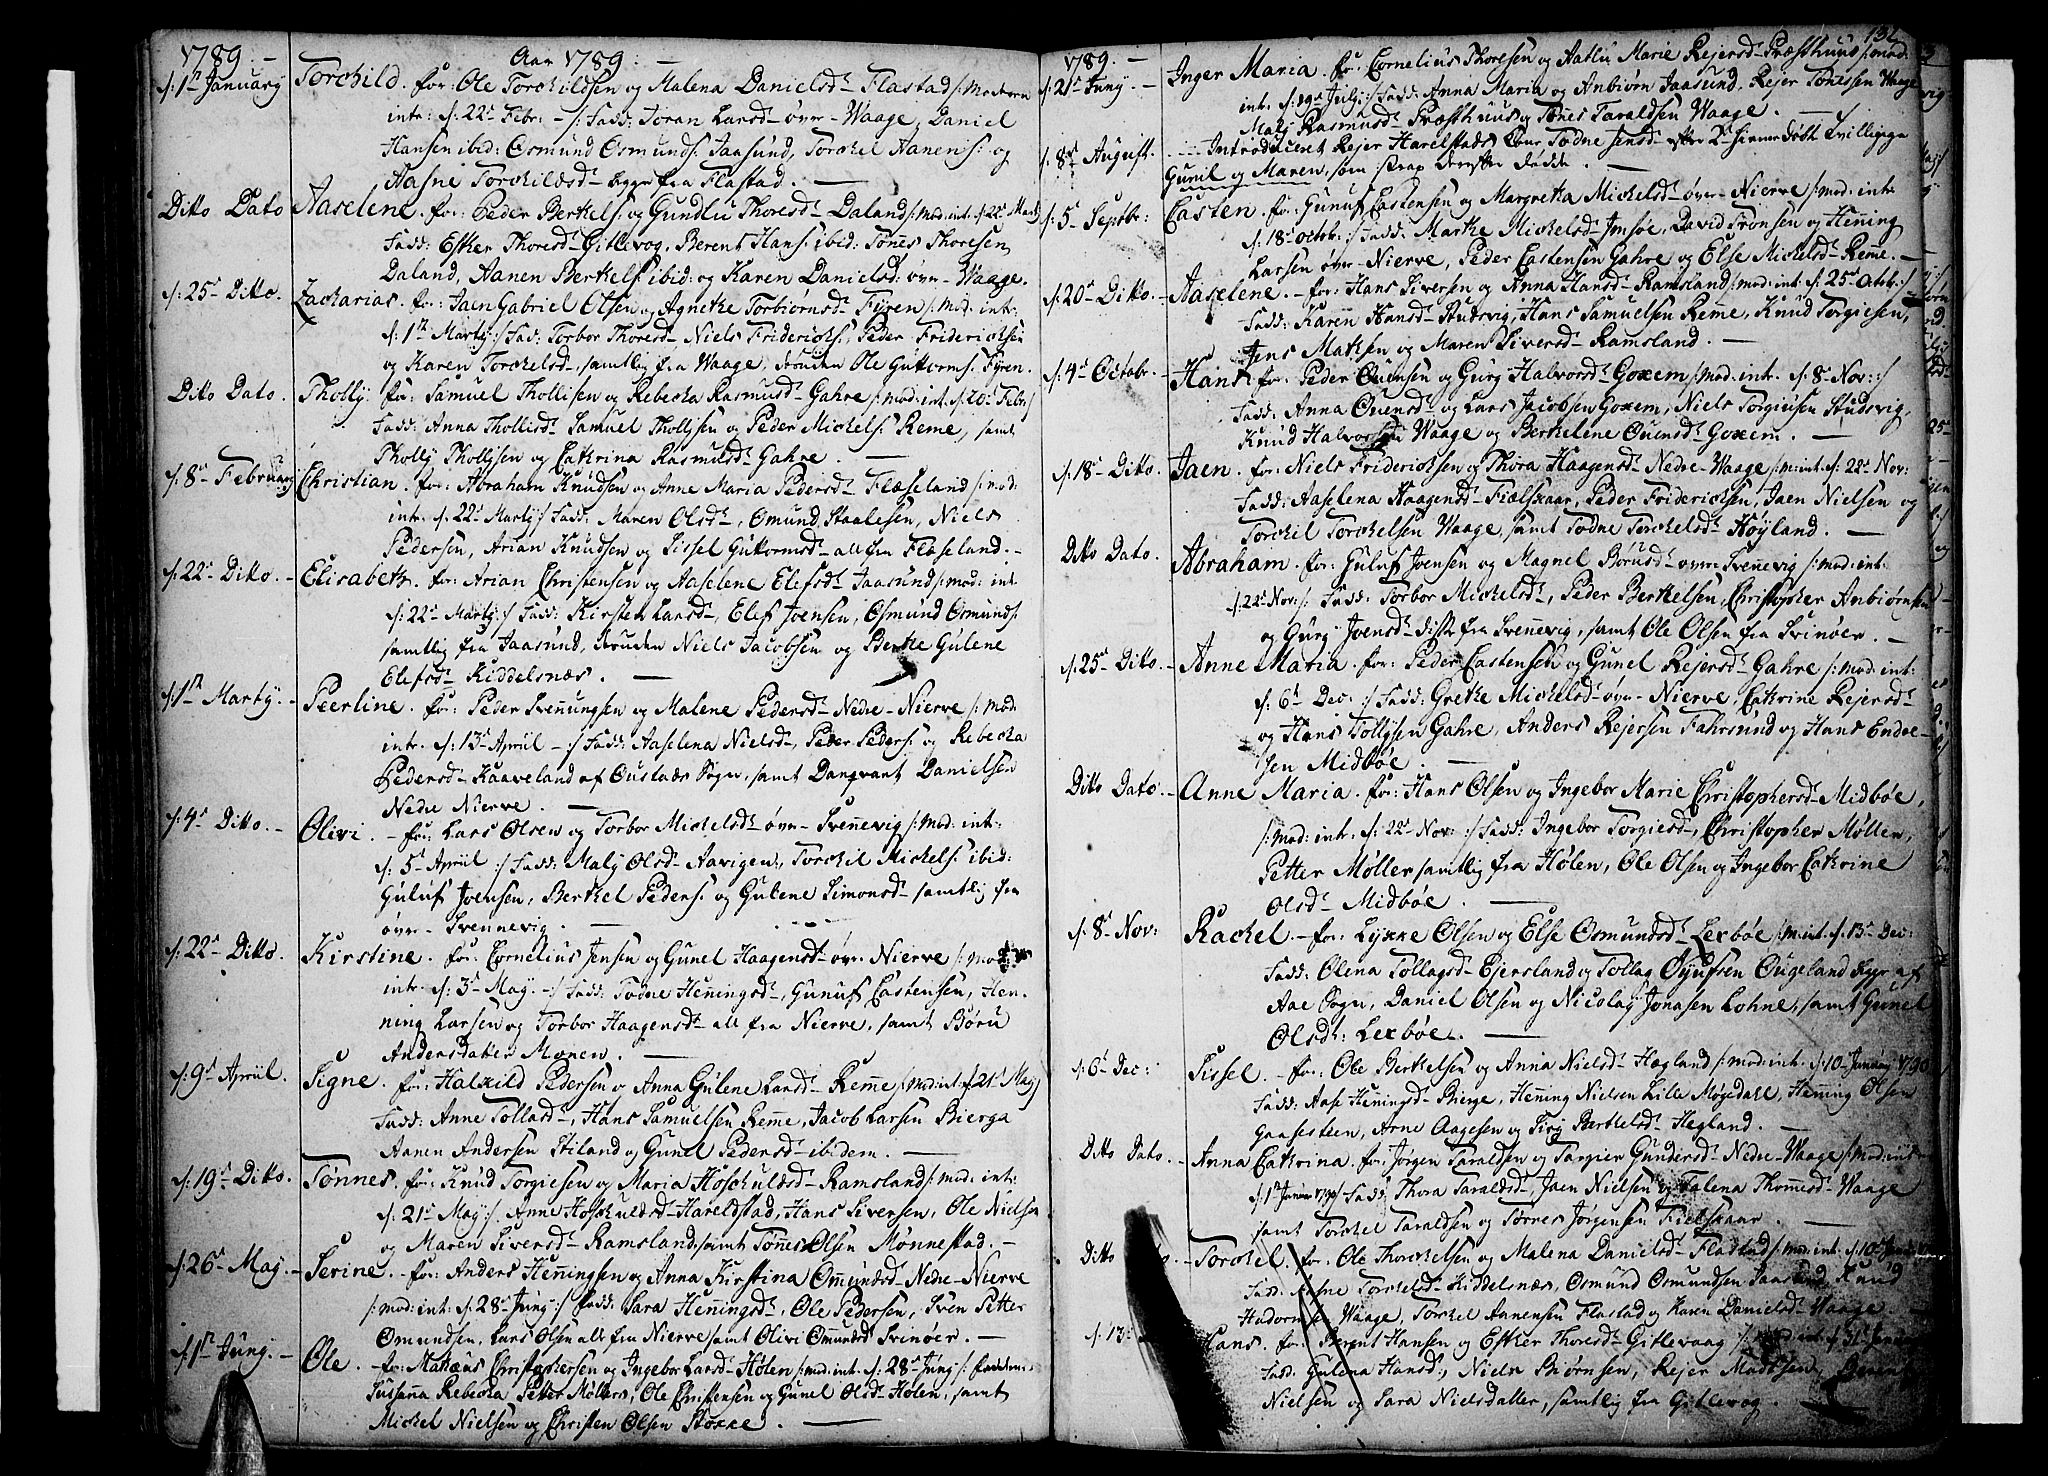 1789. — Aar 1789. —
s: 1te January Torchild. for: Ole Torchildsen og Malena Danielsd: Flastad /: Moderen
intr: s: 22de Febr: — :/ Fadd: Joran Larsd: øvr-Waage, Daniel
Hansen ibid: Osmund Osmunds: Jaasund, Torchel Aanens: og
Aasne Torchildsd: begge fra Flastad. —
Ditto Dato Aaselene. for: Peder Berthels: og Gundlu Thoresd: Daland /: mod: int: s: 22de Marty
Fadd: Esther Thoresd: Gitlevog, Berent Hans: ibid: Tønes Thoresen
Daland, Aanen Berthels: ibid: og Karen Danielsd: øvr-Waage.
s: 25de Ditto. Zacharias. for: Jaen Gabriel Olsen og Agnethe Torbiørnsd: Fyren /: Mod: int:
s: 1te Marty :/ Fad: Torbor Thoresd: Niels Friderichs: Peder Friderichsen
og Karen Torchelsd: samtlig fra Waage, foruden Ole Guttorms: Fyren.
Ditto Dato. Tholly. for: Samuel Thollisen og Rebecka Rasmusd: Gahre /: mod: int: s: 20de Febr:/
Fadd: Anna Thollisd: Samuel Thollysen og Peder Michels: Reme, samt
Tholly Thollysen og Cathrina Rasmusd: Gahre. —
s: 8de February Christian. for: Abraham Knudsen og Anne Maria Pedersd: Flæseland /: mod:
intr. s: 22de Marty :/ Fadd: Maren Olsd: Omund Staalesen, Niels
Pedersen, Arian Knudsen og Sissel Guttormsd: all fra Flæseland. —
s: 22de Ditto. — Elisabeth. for: Arian Christensen og Aaselene Elefsd: Jaasund /: mod: int:
s: 22de Marty :/ Fadd: Kirsten Larsd: Elef Joensen, Osmund Osmunds:
samtlig fra Jaasund, foruden Niels Jacobsen og Berthe Gulene
Elefsd: Kiddelsnæs. —
s: 1te Marty. — Peerline. for: Peder Svennungsen og Malene Pedersd: Nedre-Nierve /: mod:
intr. s: 13de Apriil — :/ Fadd: Aaselena Nielsd: Peder Peders: og Rebecka
Pedersd: Kaaveland af Oustads Sogn, samt Danqvart Danielsen
Nedre Nierve. —
s: 4de Ditto. — Olivi. — for: Lars Olsen og Torbor Michelsd: øvr-Svennevig /: mod: int:
s: 5de Apriil :/ Fadd: Maly Olsd: Aavigen, Torchil Michels: ibid:
Guluf Joensen, Berthel Peders: og Gulene Simonsd: samtlig fra
øvr-Svennevig. —
s: 22de Ditto. Kirstine. for: Cornelius Jensen og Gunel Haagensd: øvr Nierve /: mod:
intr. s: 3de May. — :/ Fadd: Todne Henningsd: Gunuf Castensen, Hen-
ning Larsen og Torbor Haagensd: all fra Nierve, samt Børu
Andersdatter Monen. —
s: 9de Apriil. Signe. for: Halkild Pedersen og Anna Gulene Larsd: Remme /: mod: int: s: 21de May:/
Fadd: Anne Tollasd: Hans Samuelsen Reme, Jacob Larsen Bierga
Aanen Andersen Stiland og Gunel Pedersd: ibidem. —
s: 19de Ditto. Tønnes. for: Knud Torgiesen og Maria Hoskuldsd: Ramsland /: mod: int:
s: 21de May :/ Anne Hoskuldsd: Hareldstad, Hans Siversen, Ole Nielsen
og Maren Siversd: Ramsland, samt Tønes Olsen Monnestad. —
s: 26de May. — Serine. — for: Anders Henningsen og Anna Kirstina Ommundsd: Nedre-Nierve
/: mod: int: s: 28de Juny :/ Fadd: Sara Henningsd: Ole Pedersen, Sven Petter
Omundsen, Lars Olsen alle fra Nierve samt Olivi Omundsd: Svinøer. —
s: 1te Juny. — Ole. — for: Mathæus Christophersen og Ingebor Larsd: Holen /: mod: int: s: 28de Juny :/
Susanna Rebecka Petter Møllers, Ole Christensen og Gunel Olsd: Holen, samt
Michel Nielsen og Christen Olsen Stokke. —
1789. — 132
s: 21de Juny. — Inger Maria. for: Cornelius Thorsen og Aathu Marie Rejersd: Præsthuus /: mod:
int: s: 19de July :/ Fadd: Anna Maria og Anbiørn Jaasund, Rejer Tønessen Waage
Maly Rasmusd: Præsthuus og Tønes Taraldsen Waage. —
s: 8de August. Introduceret Rejer Harelstads Kone Todne Jensd: efter 2de hiemedøbte Tvillinger
Gunil og Maren, som strax derefter døde. —
s: 5te Septbr: Casten. for: Gunuf Castensen og Margretha Michelsd: øvr-Nierve /: mod: int:
s: 18de Octob: :/ Fadd: Marthe Michelsd: Imsøe, David Tronsen og Hening
Larsen øvr-Nierve, Peder Castensen Gahre og Else Michelsd: Reme. —
s: 20de Ditto. — Aaselene. — for: Hans Siversen og Anna Hansd: Ramsland /: mod: int: s: 25de Octob: :/
Fadd: Karen Hansd: Studsvig, Hans Samuelsen Reme, Knud Torgiesen,
Jens Mathsen og Maren Siversd: Ramsland. —
s: 4de Octobr. — Hans. for: Peder Ouensen og Gurg Halvorsd: Goxem /: mod: int: s: 8de Nov: :/
Fadd: Anna Ouensd: og Lars Jacobsen Goxem, Niels Torgiusen Studsvig,
Knud Halvorsen Waage og Berthelene Ouensd: Goxem. —
s: 18de Ditto. Jaen. for: Niels Friderichsen og Thora Haagensd: Nedre-Waage /: m: int: s: 22de Nov:
Fadd: Aaselena Haagensd: Fielskaar, Peder Friderichsen, Jaen Nielsen og
Torchil Torchelsen Waage, samt Todne Torchelsd: Høyland. —
Ditto Dato. Abraham. for: Guluf Joensen og Magnel Børusd: øvr-Svenevig /: mod: int:
s: 22de Nov: :/ Fadd: Torbor Michelsd: Peder Berthelsen, Christopher Anbiørnsen
og Gurg Joensd: disse fra Svennevig, samt Ole Olsen fra Svinøer. —
s: 25de Ditto. — Anne Maria. for: Peder Castensen og Gunel Rejersd: Gahre /: mod: int:
s: 6de Dec: :/ Fadd: Grethe Michelsd: øvr-Nierve, Cathrine Rejersd:
og Hans Tollysen Gahre, Anders Rejersen Fahrsund og Hans Endre-
sen Midbøe. —
Ditto Dato. — Anne Maria. for: Hans Olsen og Ingebor Marie Christophersd: Midbøe,
/: mod: int: s: 22de Nov: :/ Fadd: Ingebor Torgiesd: Christopher Møller,
Petter Møller samtlig fra Holen, Ole Olsen og Ingebor Cathrine
Olsd: Midbøe. —
s: 8de Nov: Rachel. — for: Lykke Olsen og Else Osmundsd: Lexbøe /: m: int: s: 13de Dec:
Fadd: Olena Tollagsd: Ejersland og Tollag Oyufsen Ougeland begge af
Aae Sogn, Daniel Olsen og Nicolay Jonasen Lohne, samt Gunel
Olsd: Lexbøe. —
s: 6te Dec: Sissel. — for: Ole Berthelsen og Anna Nielsd: Hægland /: mod: int: s: 10de January 1790
Fadd: Aase Henningsd: Bierge, Hening Nielsen Lille Møgedahl, Hening Olsen
Gaasesteen, Arne Aagesen og Siri Berthelsd: Hegland. —
Ditto Dato. — Anna Cathrina. for: Jørgen Taraldsen og Targier Gundersd: Nedre-Waage /: mod: int:
s: 1te Januar 1790 :/ Fadd: Thora Taraldsd: Jaen Nielsen og Talena Thommesd: Waage
samt Torchel Taraldsen og Tørres Jørgensen Fielskaar. —
Ditto Dato — Torchel. for: Ole Thorchelsen og Malena Danielsd: Flastad /: mod: int: s: 10de
Fadd: Aasne Torchelsd: Kiddelsnæs, Osmund Osmundsen Jaasund, Knud
Waage, Torchel Aanensen Flastad og Karen Danielsd: Waage. —
s: 13de Hans. for: Berent Hansen og Esther Thoresd: Gitlevaag /: mod: int: s: 31te
Fadd: Gulena Hansd: Niels Biørnsen, Rejer Madsen, Berent
Nielsen og Sara Nielsdatter, samtlig fra Gitlevog. —